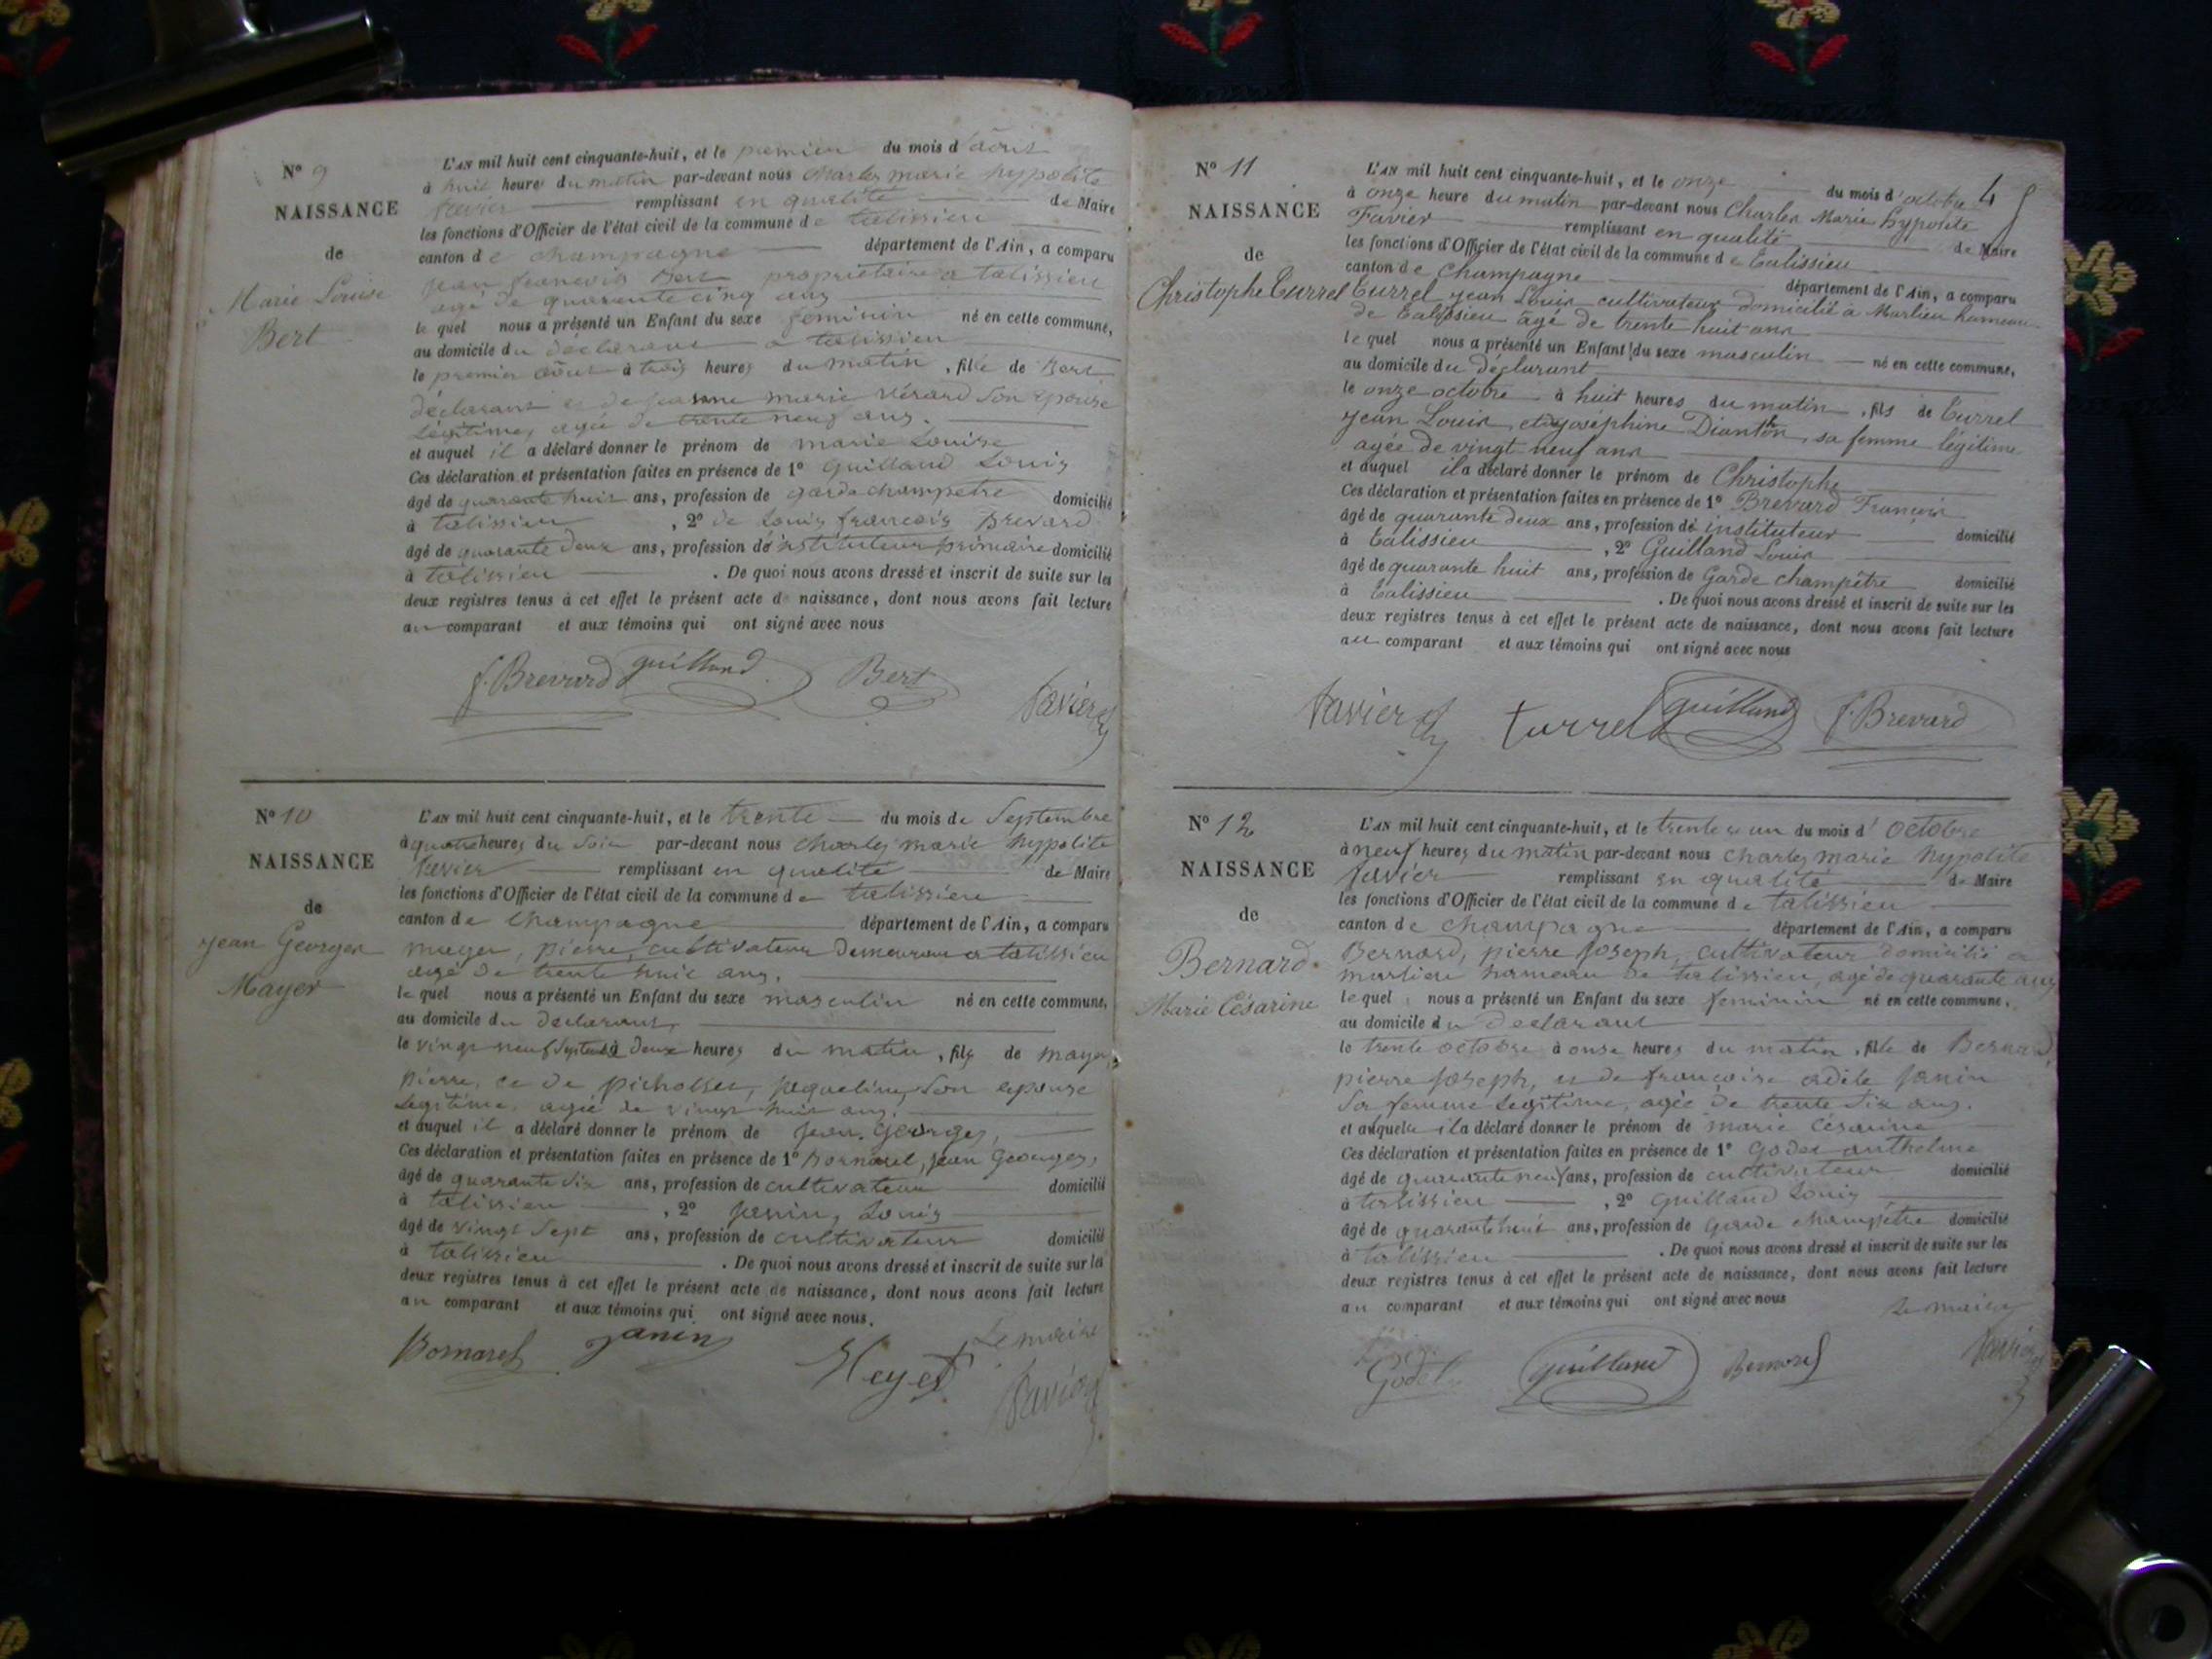 N° 9
NAISSANCE
de
Marie Louise
Bert
L'AN mil huit cent cinquante-huit, et le premier du mois d'août
à huit heures du matin par-devant nous Charles marie hypolite
favier remplissant en qualité de Maire
les fonctions d'Officier de l'état civil de la commune de talissieu
canton de champagne département de l'Ain, a comparu
jean françois Bert propriétaire a talissieu
agé de quarante cinq ans
le quel nous a présenté un Enfant du sexe feminin né en cette commune,
au domicile du déclarant a talissieu
le premier août à trois heures du matin, fille de Bert
déclarant et de jeanne marie Vérard son epouse
légitime, agée de trente neuf ans.
et auquel il a déclaré donner le prénom de marie Louise
Ces déclaration et présentation faites en présence de 1° Guilland Louis
âgé de quarante huit ans, profession de garde champetre domicilié
à talissieu, 2° de Louis françois Brevard
âgé de quarante deux ans, profession de instituteur primaire domicilié
à talissieu. De quoi nous avons dressé et inscrit de suite sur les
deux registres tenus à cet effet le présent acte de naissance, dont nous avons fait lecture
au comparant et aux témoins qui ont signé avec nous
f. Brevard guilland Bert favier
N° 10
NAISSANCE
de
Jean Georges
Mayer
L'AN mil huit cent cinquante-huit, et le trente du mois de Septembre
à quatre heures du soir par-devant nous charles marie hypolite
favier remplissant en qualité de Maire
les fonctions d'Officier de l'état civil de la commune de talissieu
canton de Champagne département de l'Ain, a comparu
mayer, pierre, cultivateur demeurant a talissieu
agé de trente huit ans.
le quel nous a présenté un Enfant du sexe masculin né en cette commune,
au domicile du declarant,
le vingt neuf septembre à deux heures du matin, fils de mayer,
pierre, et de jaqueline, son epouse
legitime. agée de vingt huit ans.
et auquel il a déclaré donner le prénom de jean. Georges,
Ces déclaration et présentation faites en présence de 1° Bornarel, jean Georges,
âgé de quarante six ans, profession de cultivateur domicilié
à talissieu, 2° janin, Louis
âgé de vingt sept ans, profession de cultivateur domicilié
à talissieu. De quoi nous avons dressé et inscrit de suite sur les
deux registres tenus à cet effet le présent acte de naissance, dont nous avons fait lecture
au comparant et aux témoins qui ont signé avec nous.
Bornarel Janin Le maire
favier
N° 11
NAISSANCE
de
Christophe Turrel
4
L'AN mil huit cent cinquante-huit, et le onze du mois d'octobre
à onze heure du matin par-devant nous Charles Marie hypolite
Favier remplissant en qualité de Maire
les fonctions d'Officier de l'état civil de la commune de Talissieu
canton de Champagne département de l'Ain, a comparu
Turrel jean Louis cultivateur domicilié à Marlieu hameau
de Talissieu âgé de trente huit ans
le quel nous a présenté un Enfant du sexe masculin né en cette commune,
au domicile du déclarant
le onze octobre à huit heures du matin, fils de Turrel
jean Louis, et de joséphine Dianton, sa femme légitime
agée de vingt neuf ans
et auquel il a déclaré donner le prénom de Christophe
Ces déclaration et présentation faites en présence de 1° Brevard François
âgé de quarante deux ans, profession de instituteur domicilié
à Talissieu, 2° Guilland Louis
âgé de quarante huit ans, profession de Garde champêtre domicilié
à Talissieu. De quoi nous avons dressé et inscrit de suite sur les
deux registres tenus à cet effet le présent acte de naissance, dont nous avons fait lecture
au comparant et aux témoins qui ont signé avec nous
favier turrel guilland f. Brevard
N° 12
NAISSANCE
de
Bernard
Marie Césarine
L'AN mil huit cent cinquante-huit, et le trente et un du mois d'octobre
à neuf heures du matin par-devant nous charles marie hypolite
favier remplissant en qualité de Maire
les fonctions d'Officier de l'état civil de la commune de talissieu
canton de champagne département de l'Ain, a comparu
Bernard, pierre joseph, cultivateur domicilié a
marlieu hameau de talissieu, agé de quarante ans
le quel nous a présenté un Enfant du sexe feminin né en cette commune,
au domicile du declarant
le trente octobre à onze heures du matin, fille de Bernard
pierre joseph, et de francoise adèle janin
sa femme legitime, agée de trente six ans.
et auquelle il a déclaré donner le prénom de marie césarine
Ces déclaration et présentation faites en présence de 1° Godet anthelme
âgé de quarante neuf ans, profession de cultivateur domicilié
à talissieu, 2° guilland Louis
âgé de quarante huit ans, profession de garde champêtre domicilié
à talissieu. De quoi nous avons dressé et inscrit de suite sur les
deux registres tenus à cet effet le présent acte de naissance, dont nous avons fait lecture
au comparant et aux témoins qui ont signé avec nous
Le maire
Godet guilland Bernard favier